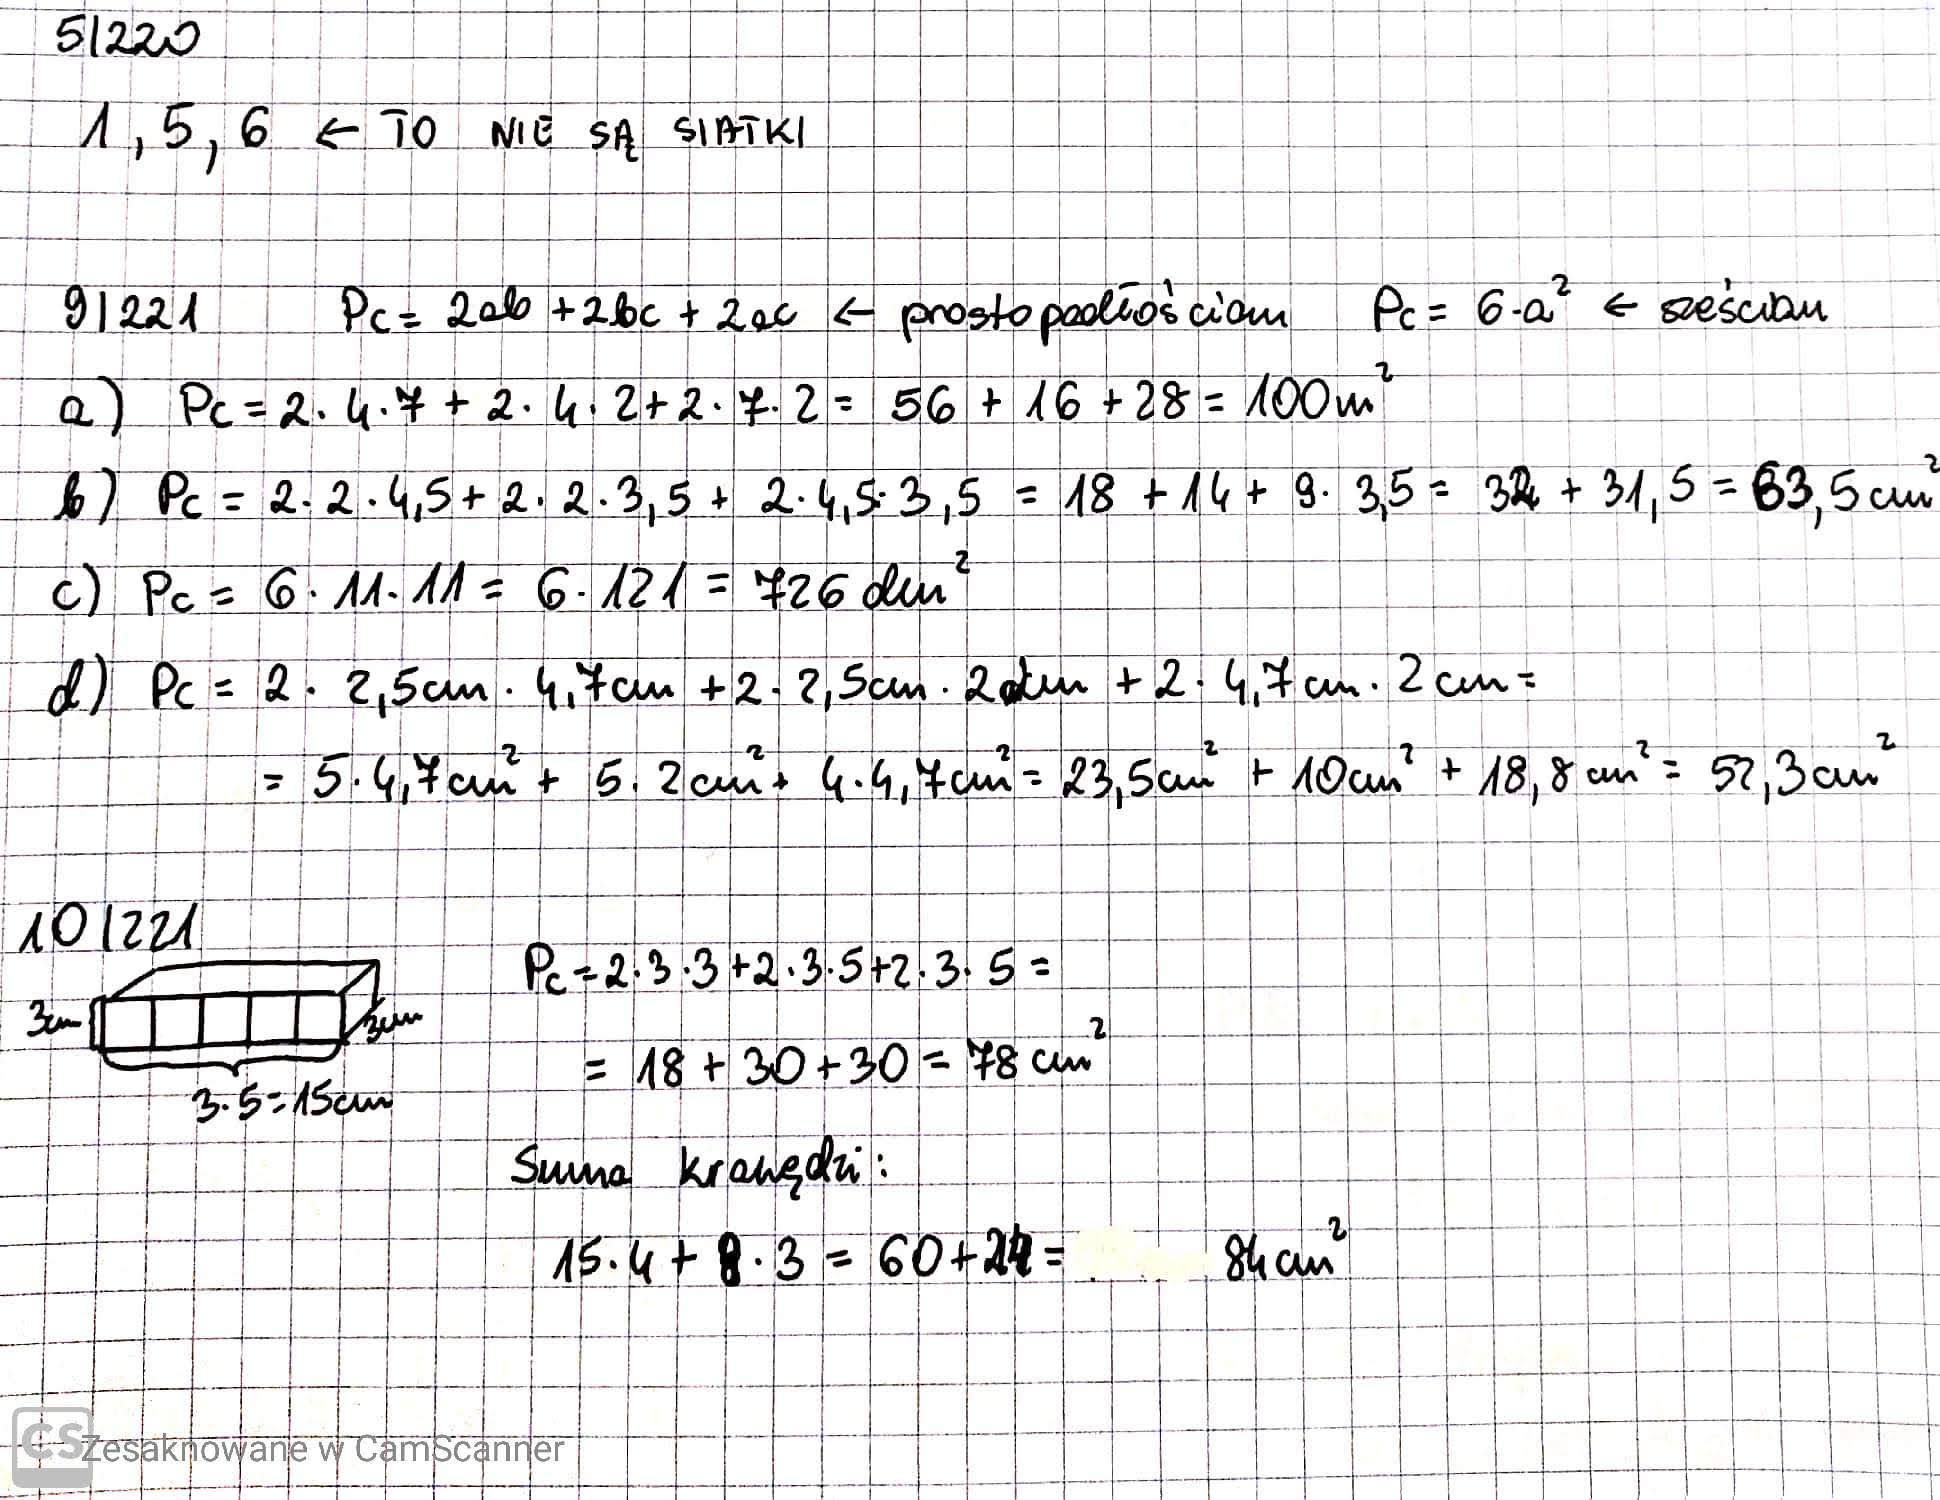 5/220
1, 5, 6 ← TO NIE SĄ SIATKI
9/221 Pc = 2ab + 2bc + 2ac ← prostopadłościan Pc = 6·a² ← sześcian
a) Pc = 2·4·7 + 2·4·2 + 2·7·2 = 56 + 16 + 28 = 100m²
b) Pc = 2·2·4,5 + 2·2·3,5 + 2·4,5·3,5 = 18 + 14 + 9·3,5 = 32 + 31,5 = 63,5 cm²
c) Pc = 6·11·11 = 6·121 = 726 dm²
d) Pc = 2·2,5cm·4,7cm + 2·2,5cm·2cm + 2·4,7cm·2cm =
= 5·4,7cm² + 5·2cm² + 4·4,7cm² = 23,5cm² + 10cm² + 18,8cm² = 52,3cm²
10/221
Pc = 2·3·3 + 2·3·5 + 2·3·5 =
3cm 3cm
= 18 + 30 + 30 = 78 cm²
3·5 = 15cm
Suma krawędzi:
15·4 + 8·3 = 60 + 24 = 84 cm²
CS Zesaknowane w CamScanner